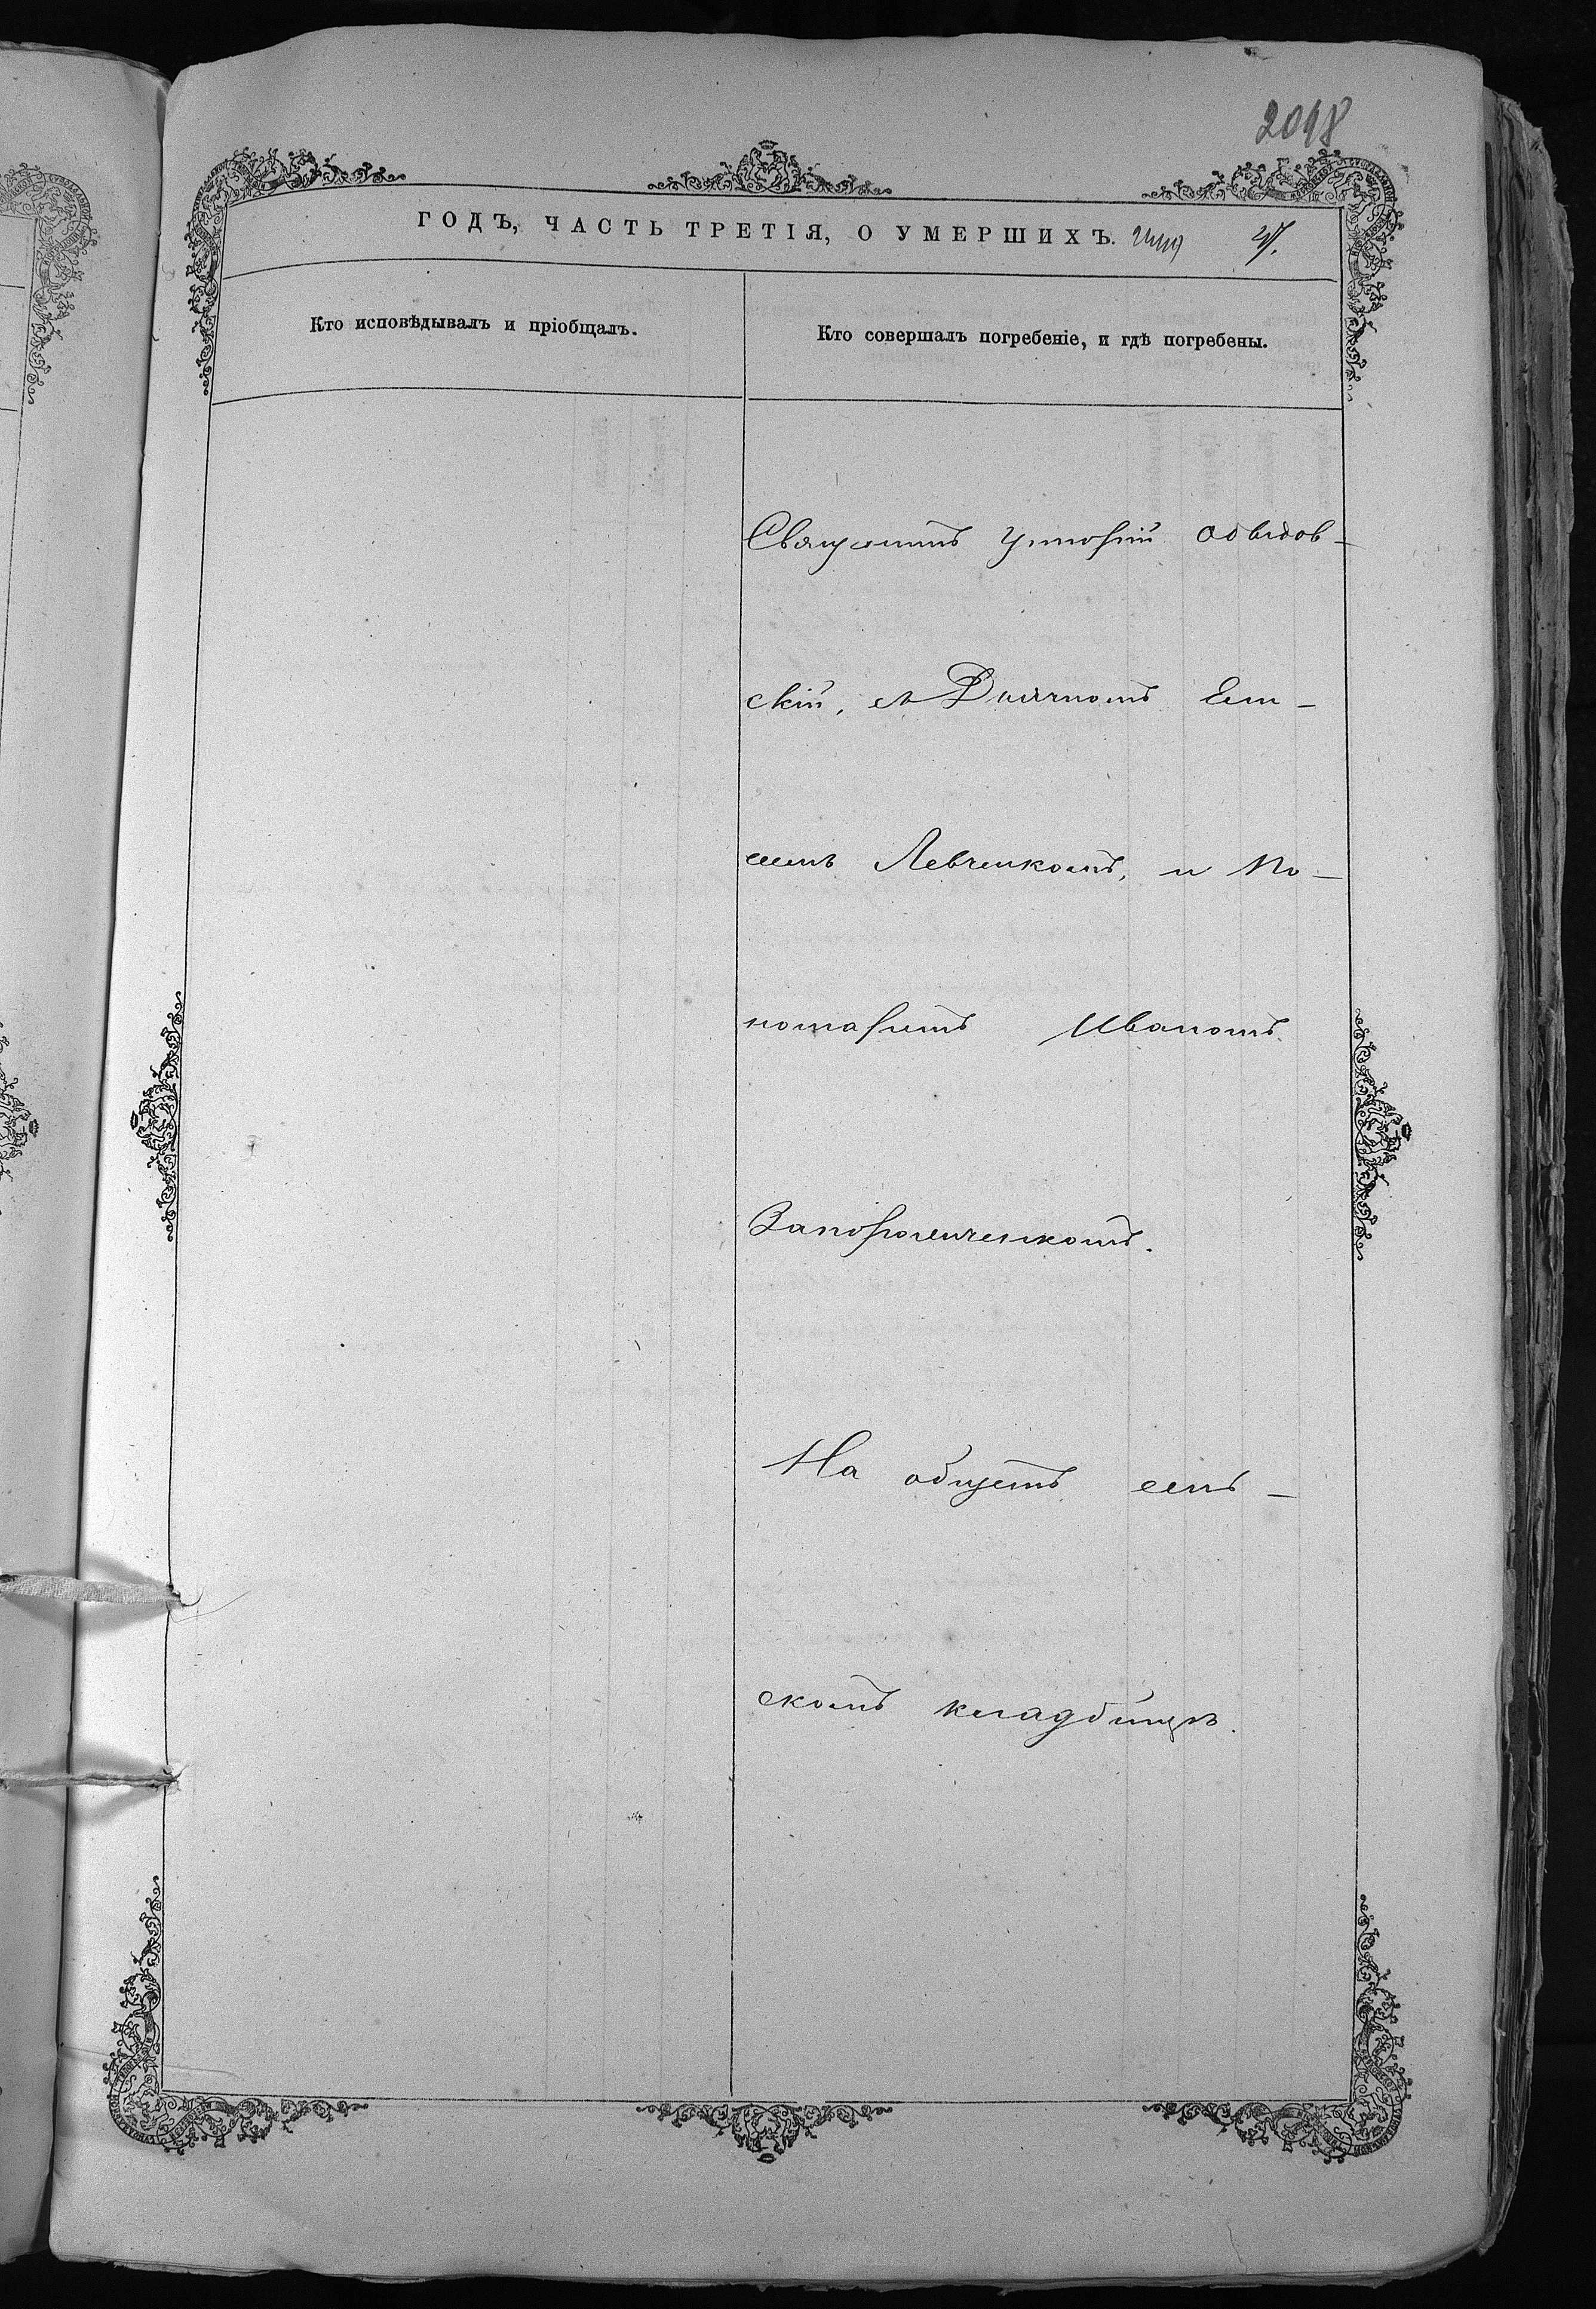 2098
ГОДЪ, ЧАСТЬ ТРЕТІЯ, О УМЕРШИХЪ.
Кто исповѣдывалъ и пріобщалъ.
Кто совершалъ погребеніе, и гдѣ погребены.
Священникъ Григорій Обыдов-
скій, съ Дьячкомъ
Левченкомъ, и По-
номаремъ Иваномъ
Запорожченкомъ.
На общемъ сель-
скомъ кладбищѣ.